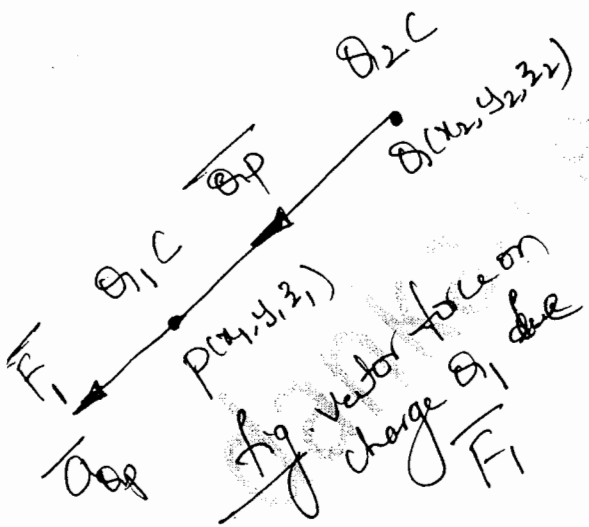 Q₂ C
Q(x₂, y₂, z₂)
Q̅P̅
Q₁ C
P(x₁, y₁, z₁)
F̅₁
a̅QP
fig. vector force on
charge Q₁ due
F̅₁